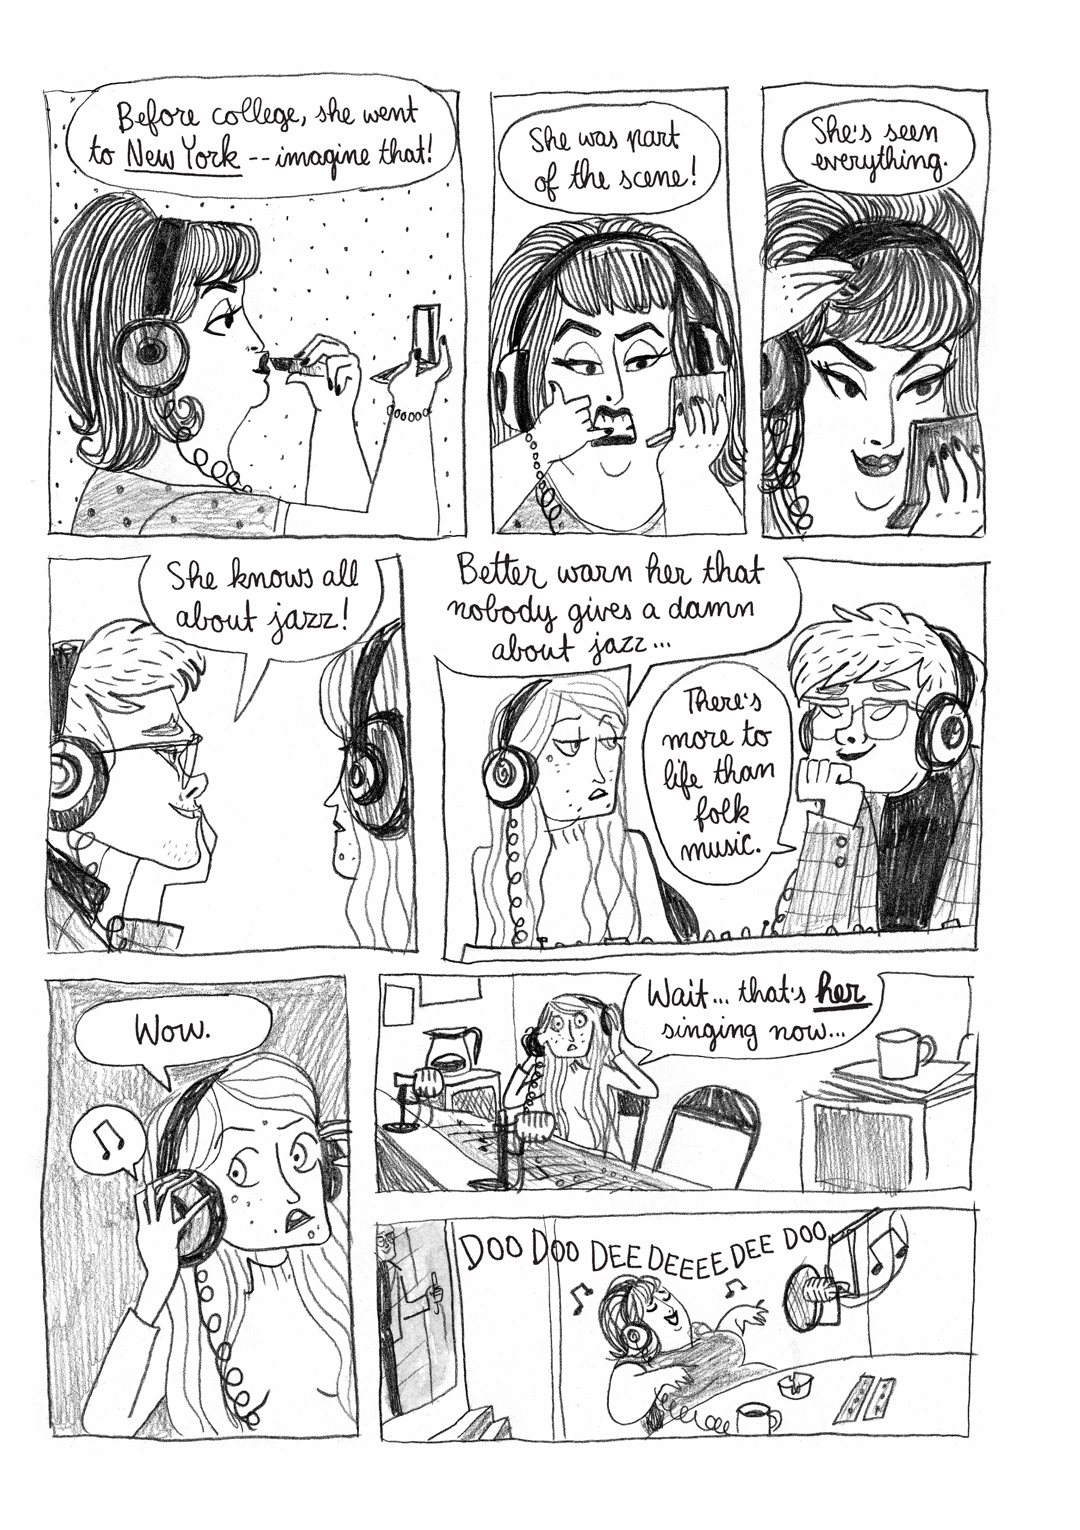 Before college, she went
to New York -- imagine that!
She was part
of the scene!
She's seen
everything.
She knows all
about jazz!
Better warn her that
nobody gives a damn
about jazz...
There's
more to
life than
folk
music.
Wow.
Wait... that's her
singing now...
DOO DOO DEE DEEEE DEE DOO